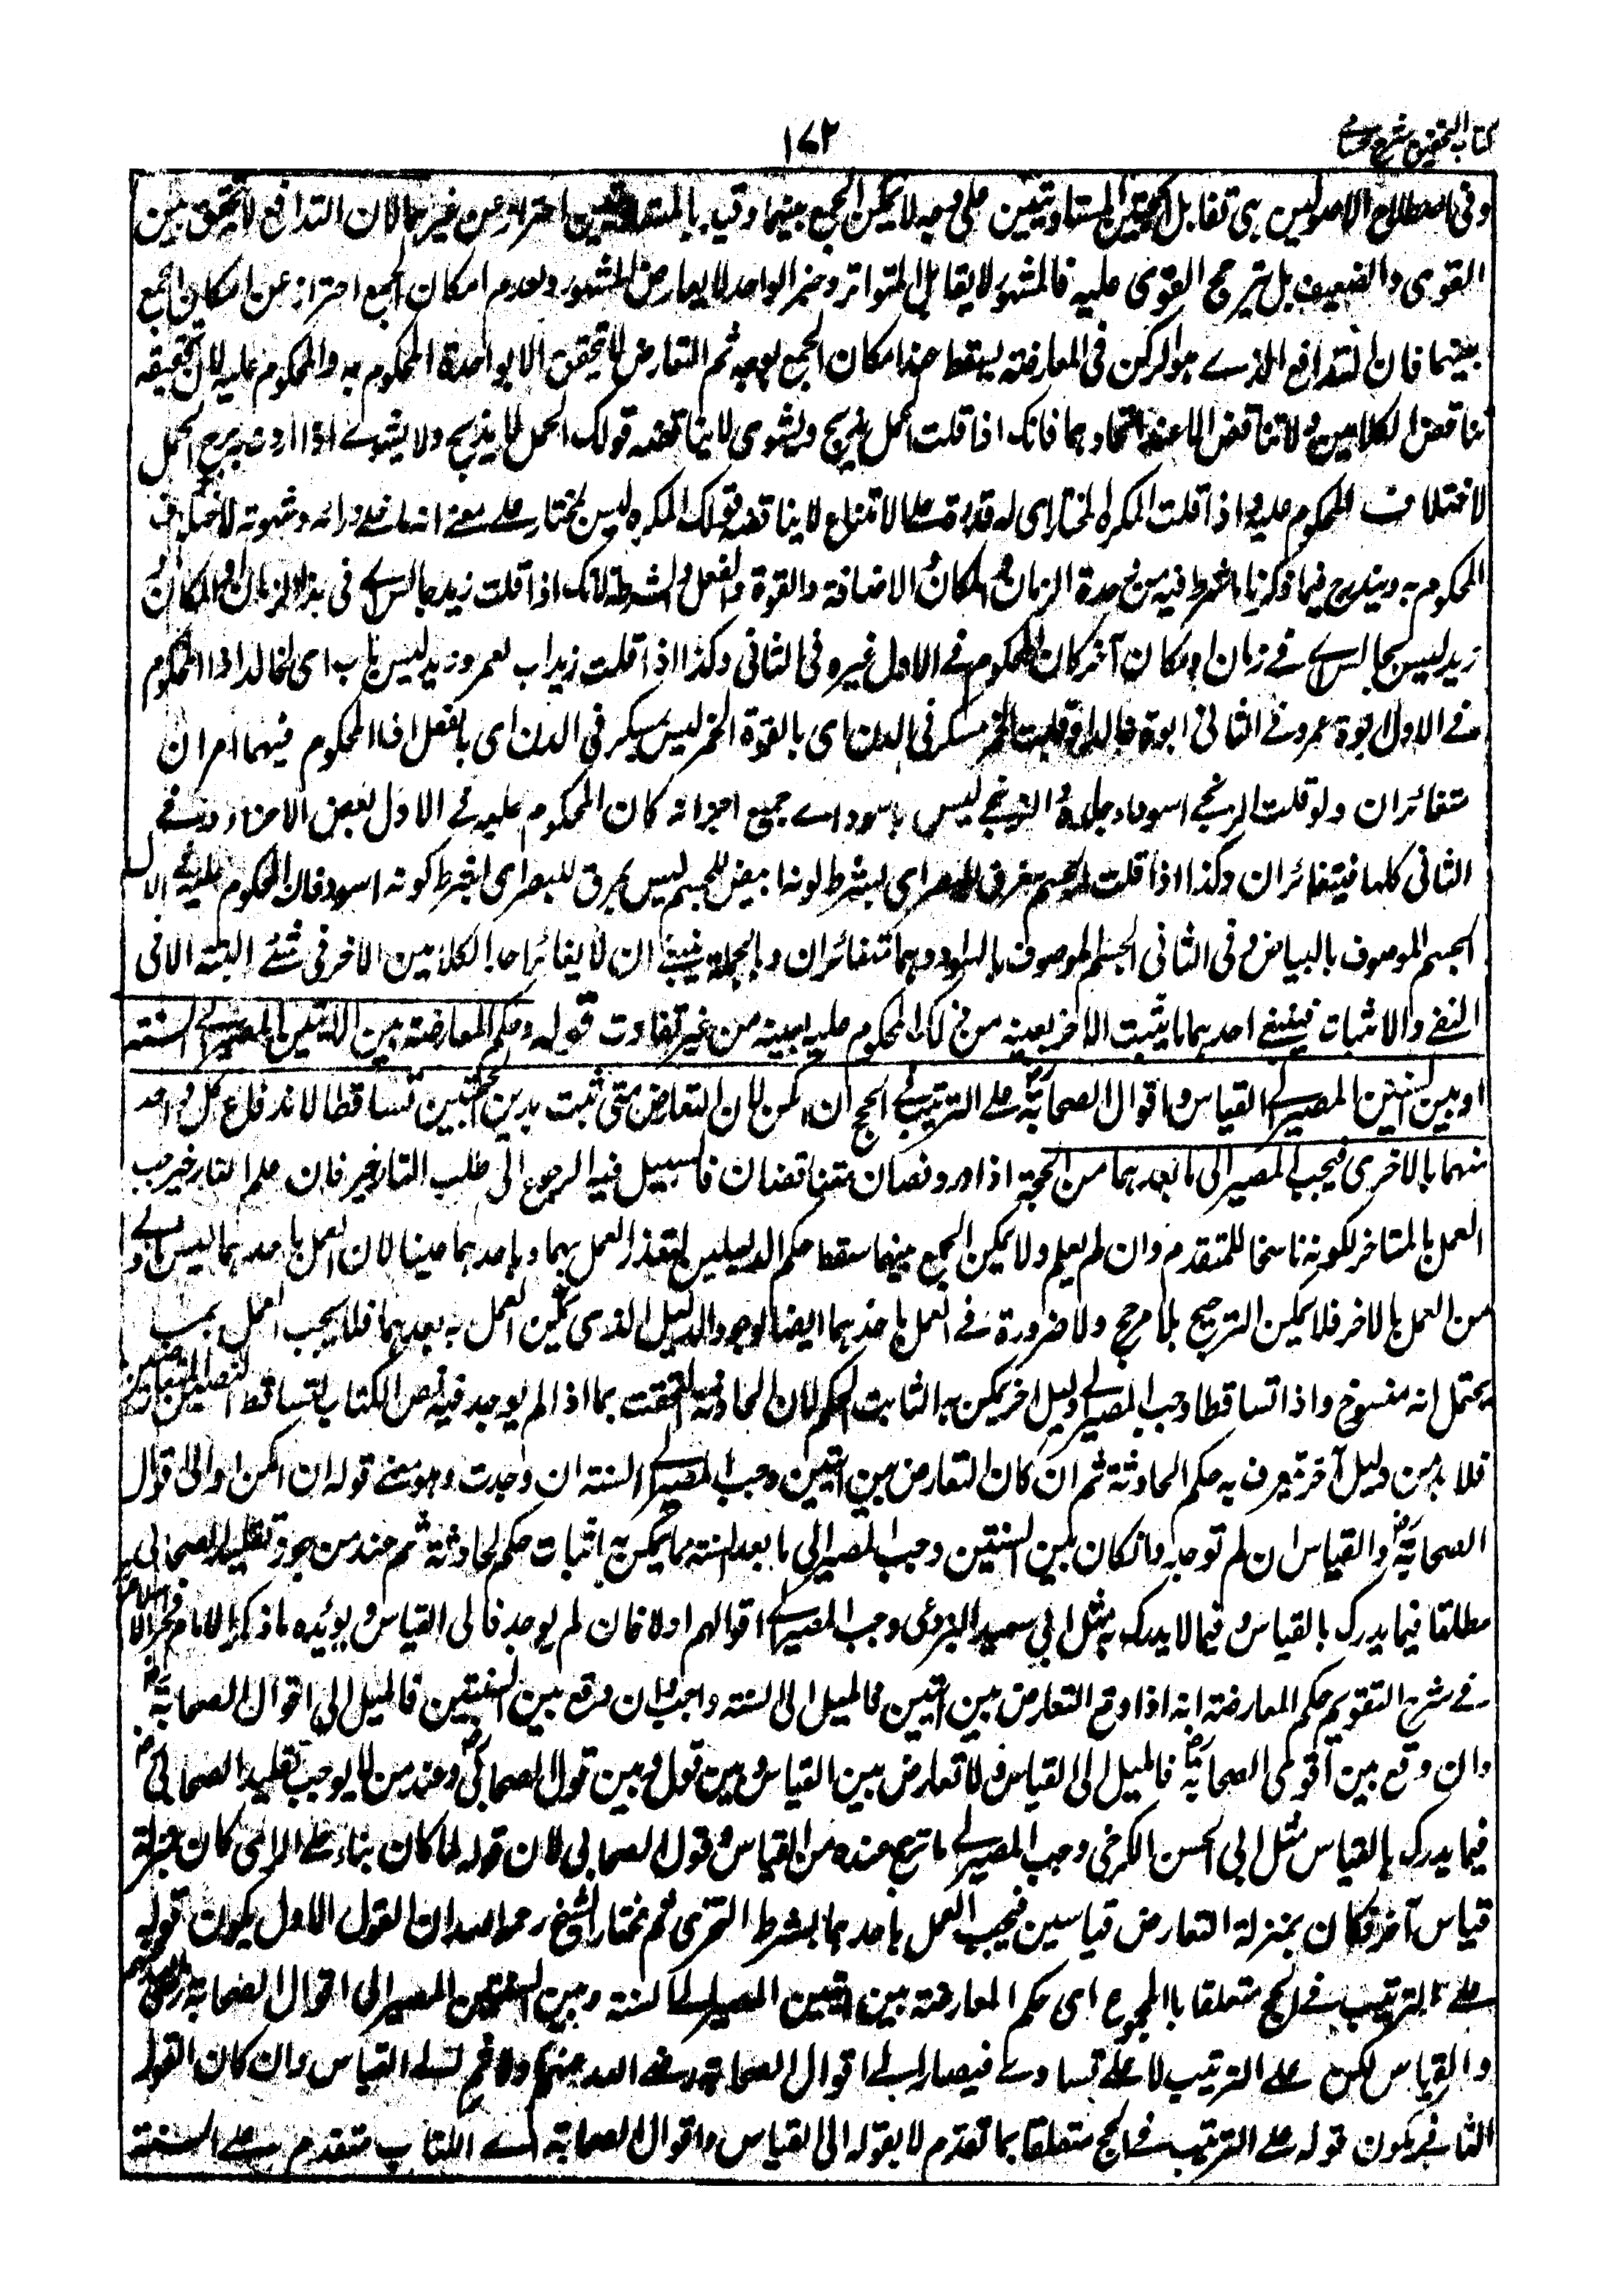 كتاب التحقيق شرح حسامي
١٧٢
وفى اصطلاح الاصوليين هى تقابل الحجتين المستاويتين على وجه لا يمكن الجمع بينهما وقيد بالمتساويتين احتراز عن غيرهما لان التدافع لا يتحقق بين
القوى والضعيف بل يترجح القوى عليه فالمشهور لا يقابل المتواتر وخبر الواحد لا يعارض المشهور وبعدم امكان الجمع احتراز عن امكان الجمع
بينهما فان التدافع الذے هو الركن فى المعارضة يسقط عند امكان الجمع بوجه ثم التعارض لا يتحقق الا بواحدة المحكوم به والمحكوم عليه لان تحقيقه
تناقض الكلامين ولا تناقض الا عند اتحادهما فانك اذا قلت الحمل يذبح ويشوى لا يناقضه قولك الحمل لا يذبح ولا يشوے اذا اردت به برج الحمل
لاختلاف المحكوم عليه واذا قلت المكره المختار اى له قدرة علے الامتناع لا يناقضه قولك المكره ليس بمختار علے معنے انه ما خلے ورائه وشهوته لاختلاف
المحكوم به ويندرج فيما ذكرنا ما شرط فيه من وحدة الزمان والمكان والاضافة والقوة والفعل والشرط لانك اذا قلت زيد جالس اے فى هذا الزمان او المكان
زيد ليس بجالس اے فے زمان او مكان آخر كان المحكوم فے الاول غيره فى الثانى وكذا اذا قلت زيد اب لعمرو زيد ليس باب اى لخالد اذ المحكوم
فے الاول ابوة عمرو فے الثانى ابوة خالد ولو قلت الخمر مسكر فى الدن اى بالقوة الخمر ليس بمسكر فى الدن اى بالفعل اذ المحكوم فيهما امران
متغائران ولو قلت الزنجے اسود اے جلده الزنجے ليس باسود اے جميع اجزائه كان المحكوم عليه فے الاول بعض الاجزاء وفے
الثانى كلها فيتغائران وكذا اذا قلت الجسم مفرق للبصر اى بشرط كونه ابيض الجسم ليس بمفرق للبصر اى بشرط كونه اسود فان المحكوم عليه فے الاول
الجسم الموصوف بالبياض وفى الثانى الجسم الموصوف بالسواد وهما متغائران وبالجملة ينبغے ان لا يغائر احد الكلامين الاخر فى شئے البتة الا فى
النفے والاثبات فينفے احدهما ما يثبت الاخر بعينه من ذلك المحكوم عليه بعينه من غير تفاوت قوله وحكم المعارضة بين الايتين المصير الے السنة
او بين السنتين المصير الے القياس واقوال الصحابةؓ علے الترتيب فے الحجج ان امكن لان التعارض متى ثبت بين الحجتين تساقطا لاندفاع كل واحد
منهما بالاخرى فيجب المصير الى ما بعدهما من الحجة اذا ورد نصان متناقضان فالسبيل فيه الرجوع الى طلب التاريخ فان علم التاريخ وجب
العمل بالمتاخر لكونه ناسخا للمتقدم وان لم يعلم ولا يمكن الجمع بينهما سقط حكم الدليلين لتعذر العمل بهما وباحدهما عينا لان العمل باحدهما ليس باولے
من العمل بالاخر فلا يمكن الترجيح بلا مرجح ولا ضرورة فے العمل باحدهما ايضا لوجود الدليل الذى يمكن العمل به بعدهما فلا يجب العمل بما
يحتمل انه منسوخ واذا تساقطا وجب المصير الے دليل اخر يمكن به اثبات الحكم لان الحادثة التحقت بما اذا لم يوجد فيه نص الكتاب لتساقط النصين المتعارضين
فلا بد من دليل آخر يعرف به حكم الحادثة ثم ان كان التعارض بين آيتين وجب المصير الے السنة ان وجدت وهو معنے قوله ان امكن او الى اقوال
الصحابةؓ والقياس ان لم توجد وانكان بين السنتين وجب المصير الى ما بعد السنة مما يمكن به اثبات حكم الحادثة ثم عند من جوز تقليد الصحابى
مطلقا فيما يدرك بالقياس وفيما لا يدرك به مثل ابى سعيد البردعى وجب المصير الے اقوالهم اولا فان لم يوجد فالى القياس ويؤيده ما ذكر الامام فخر الاسلام
فے شرح التقويم حكم المعارضة انه اذا وقع التعارض بين آيتين فالميل الى السنة واجب وان وقع بين السنتين فالميل الى اقوال الصحابةؓ
وان وقع بين اقوال الصحابةؓ فالميل الى القياس ولا تعارض بين القياس وبين قول وبين قول الصحابىؓ وعند من لا يوجب تقليد الصحابىؓ
فيما يدرك بالقياس مثل ابى الحسن الكرخى وجب المصير الے ما ترجح عنده من القياس وقول الصحابى لان قوله لما كان بناء علے الراى كان بمنزلة
قياس آخر فكان بمنزلة التعارض قياسين فيجب العمل باحدهما بشرط التحرى ثم مختار الشيخ رحمه الله ان القول الاول يكون قوله
علے الترتيب فے الحجج متعلقا بالمجموع اى حكم المعارضة بين آيتين المصير الے السنة وبين السنتين المصير الى اقوال الصحابة رضى الله عنهم
والقياس لكن علے الترتيب لا علے تساوے فيصار الے اقوال الصحابة رضے الله عنهم اولا ثم الے القياس وان كان القول
الثانے يكون قوله علے الترتيب فے الحجج متعلقا بما تقدم لا بقوله الى القياس واقوال الصحابة اے الكتاب متقدم علے السنة